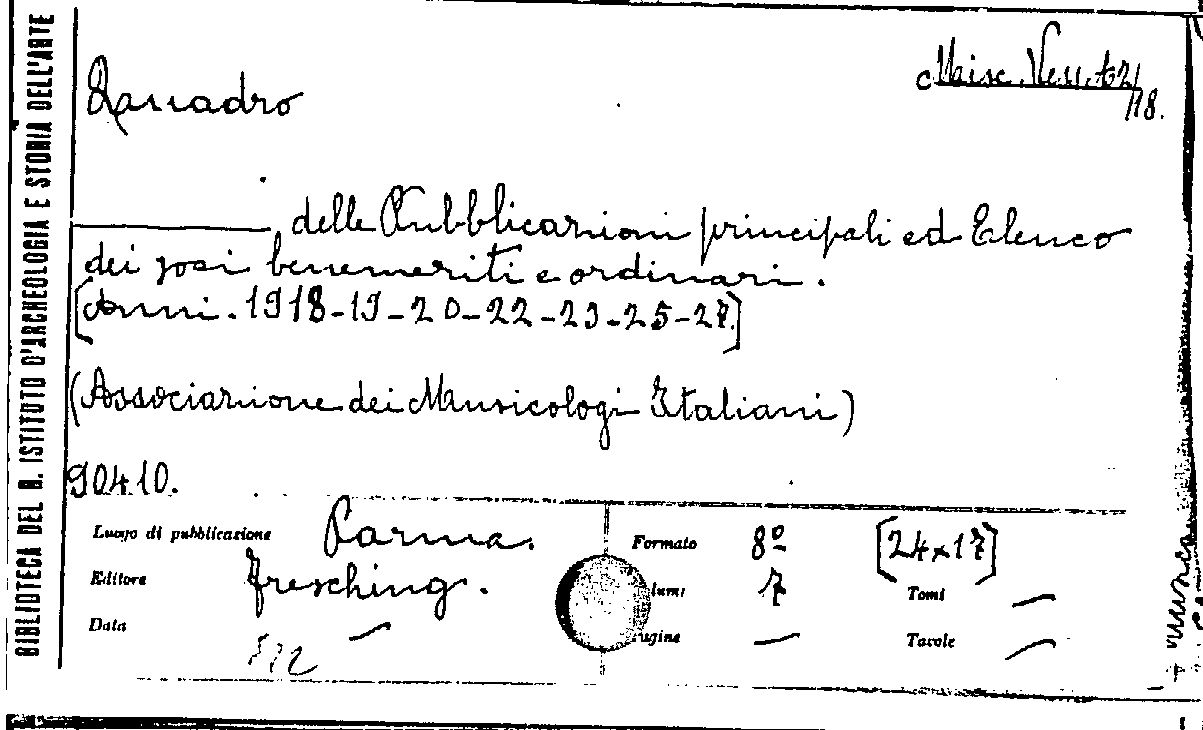 BIBLIOTECA DEL R. ISTITUTO D'ARCHEOLOGIA E STORIA DELL'ARTE
Quadro
Misc. Vess. A2/18.
, delle Pubblicazioni principali ed Elenco
dei soci benemeriti e ordinari.
[Anni. 1918-19-20-22-23-25-27.]
(Associazione dei Musicologi Italiani)
90410.
Luogo di pubblicazione Parma. Formato 8º [24x17]
Editore Fresching. lumi 7 Tomi —
Data — agine — Tavole —
musica